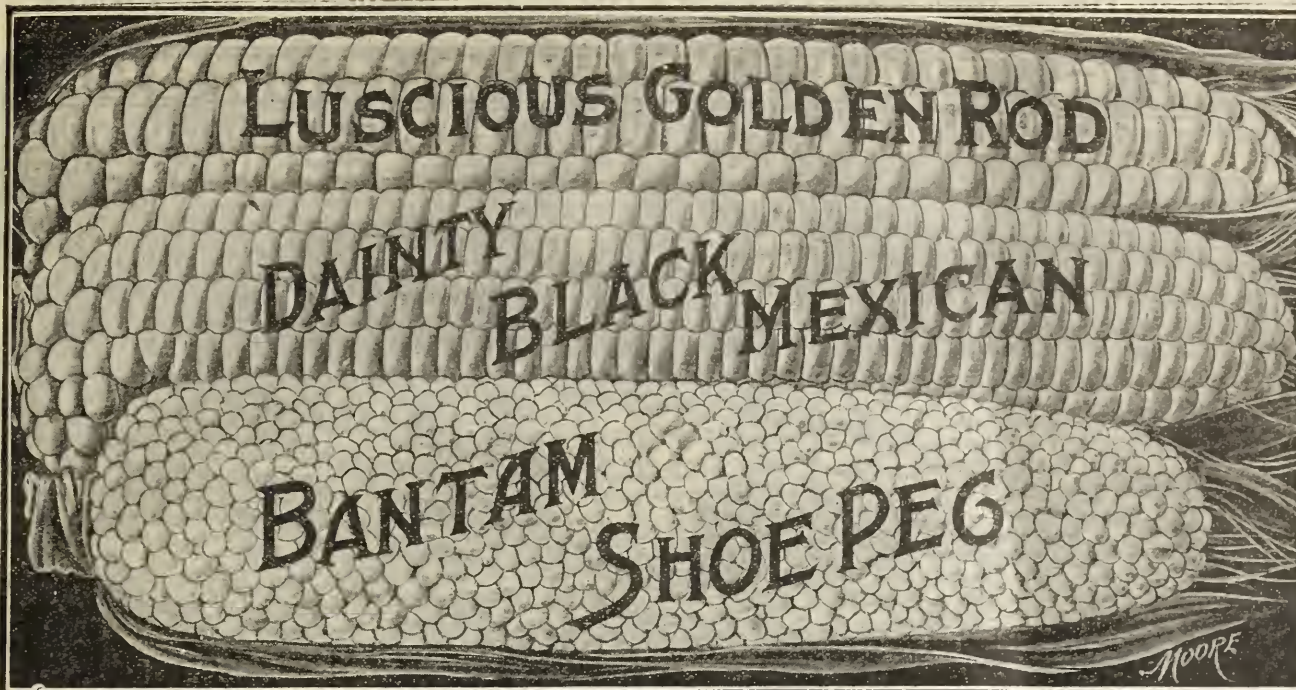 LUSCIOUS GOLDEN ROD
DAINTY BLACK MEXICAN
BANTAM SHOE PEG
MOORE